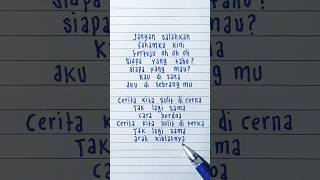 Jangan salahkan
fahamku kini
tertuju oh oh oh
siapa yang tahu?
siapa yang mau?
kau di sana
aku di sebrang mu
Cerita kita sulit di cerna
Tak lagi sama
cara berdoa
Cerita kita sulit di terka
Tak lagi sama
arah kiblatnya